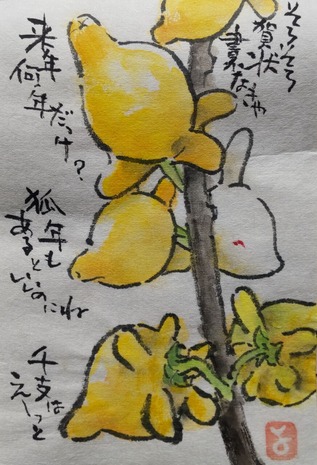 そろそろ
賀状
書かなきゃ
来年
何年だっけ?
狐年も
あると
いいのにね
干支は
えーっと